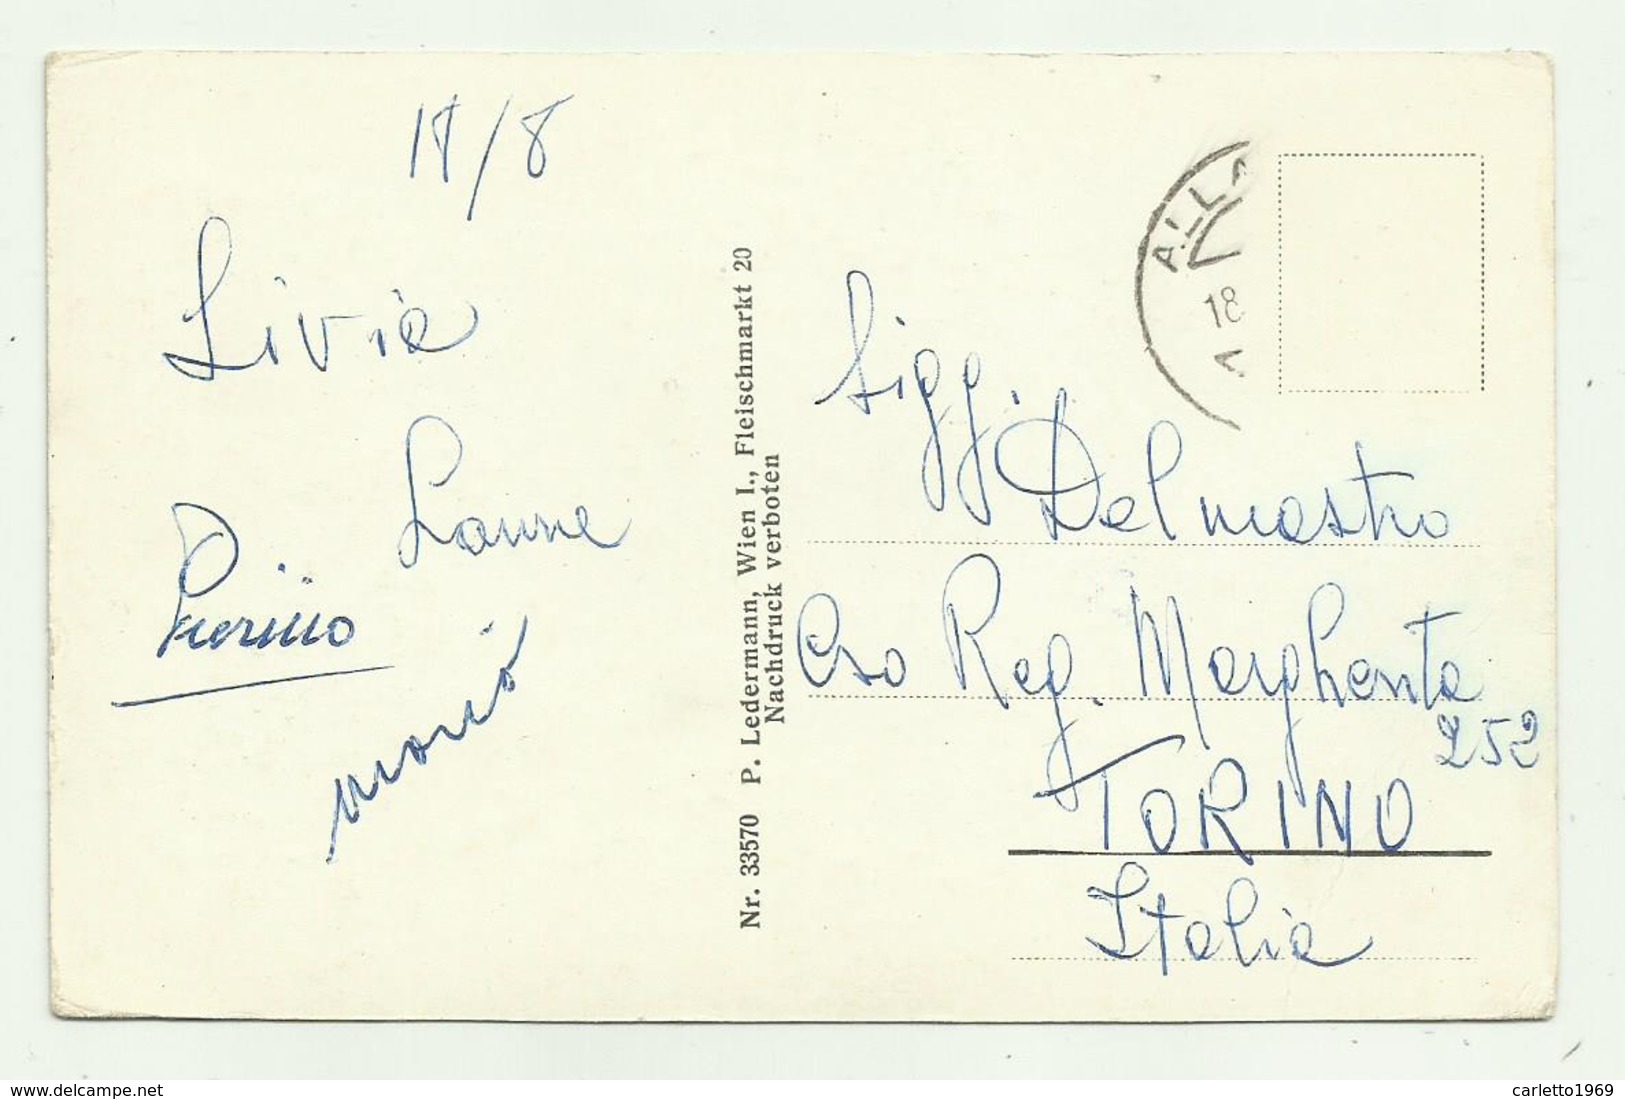 18/8
Livia
Pierino
Mario
Nr. 33570 P. Ledermann, Wien I., Fleischmarkt 20
Nachdruck verboten
ALLA
18
Sigg.
Delmastro
Cso Reg. Margherita
252
TORINO
Italia
www.delcampe.net
carletto1969